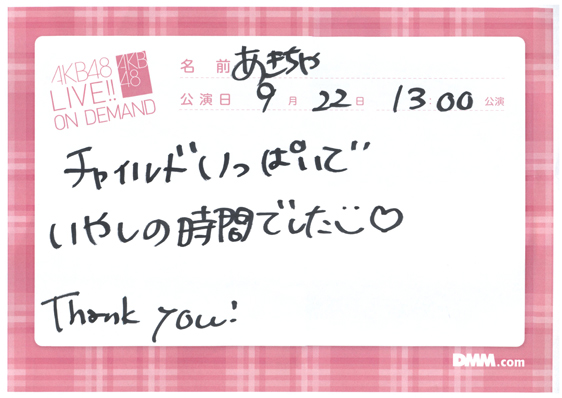 AKB48
LIVE!!
ON DEMAND
AKB
48
名前 あきちゃ
公演日 9月22日 13:00 公演
チャイルドいっぱいで
いやしの時間でした♡
Thank you!
DMM.com